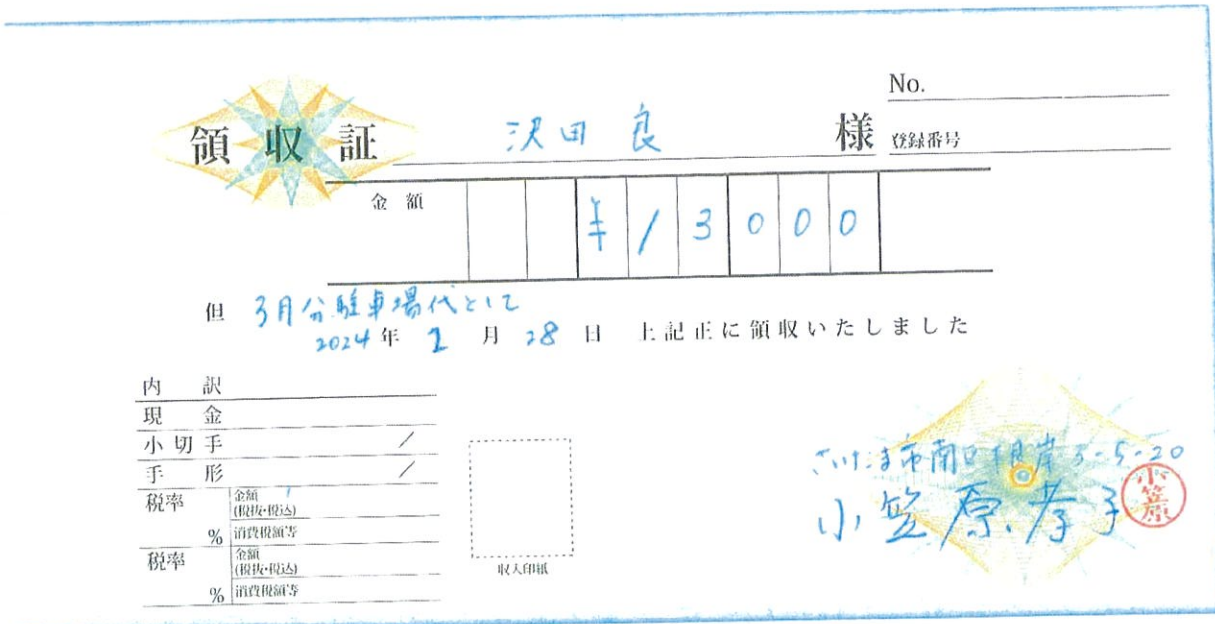 No.
領収証 沢田 良 様 登録番号
金額 ¥13000
但 3月分駐車場代として
2024年 2月 28日 上記正に領収いたしました
内訳
現金
小切手 /
手形 /
税率 % 金額(税抜・税込)
消費税額等
税率 % 金額(税抜・税込)
消費税額等
収入印紙
さいたま市南区根岸 3-5-20
小笠原 孝子
小笠原